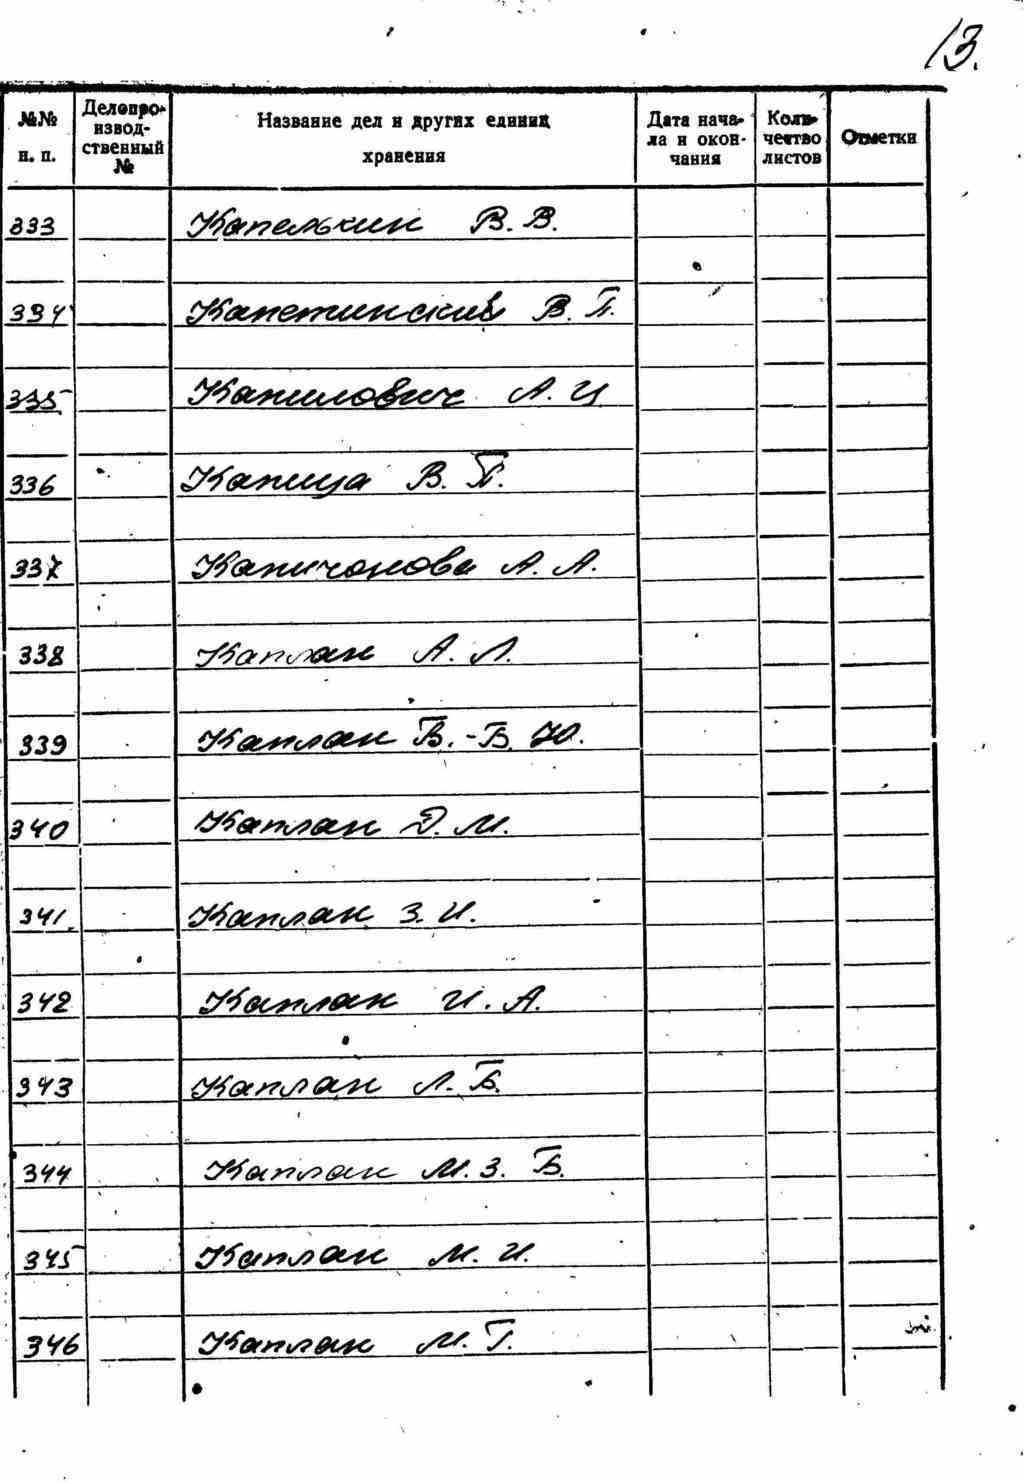 13.
№№ н. п. Делопроизводственный № Название дел и других единиц хранения Дата начала и окончания Количество листов Отметки
333 Капелькин В. В.
334 Капетинский В. П.
335 Капилович А. И.
336 Капица В. П.
337 Капичонова А. А.
338 Каплан А. Л.
339 Каплан Б.-Б. Ю.
340 Каплан Д. М.
341. Каплан З. И.
342 Каплан И. А.
343 Каплан Л. Б.
344 Каплан М. З. Б.
345 Каплан М. И.
346 Каплан М. Г.